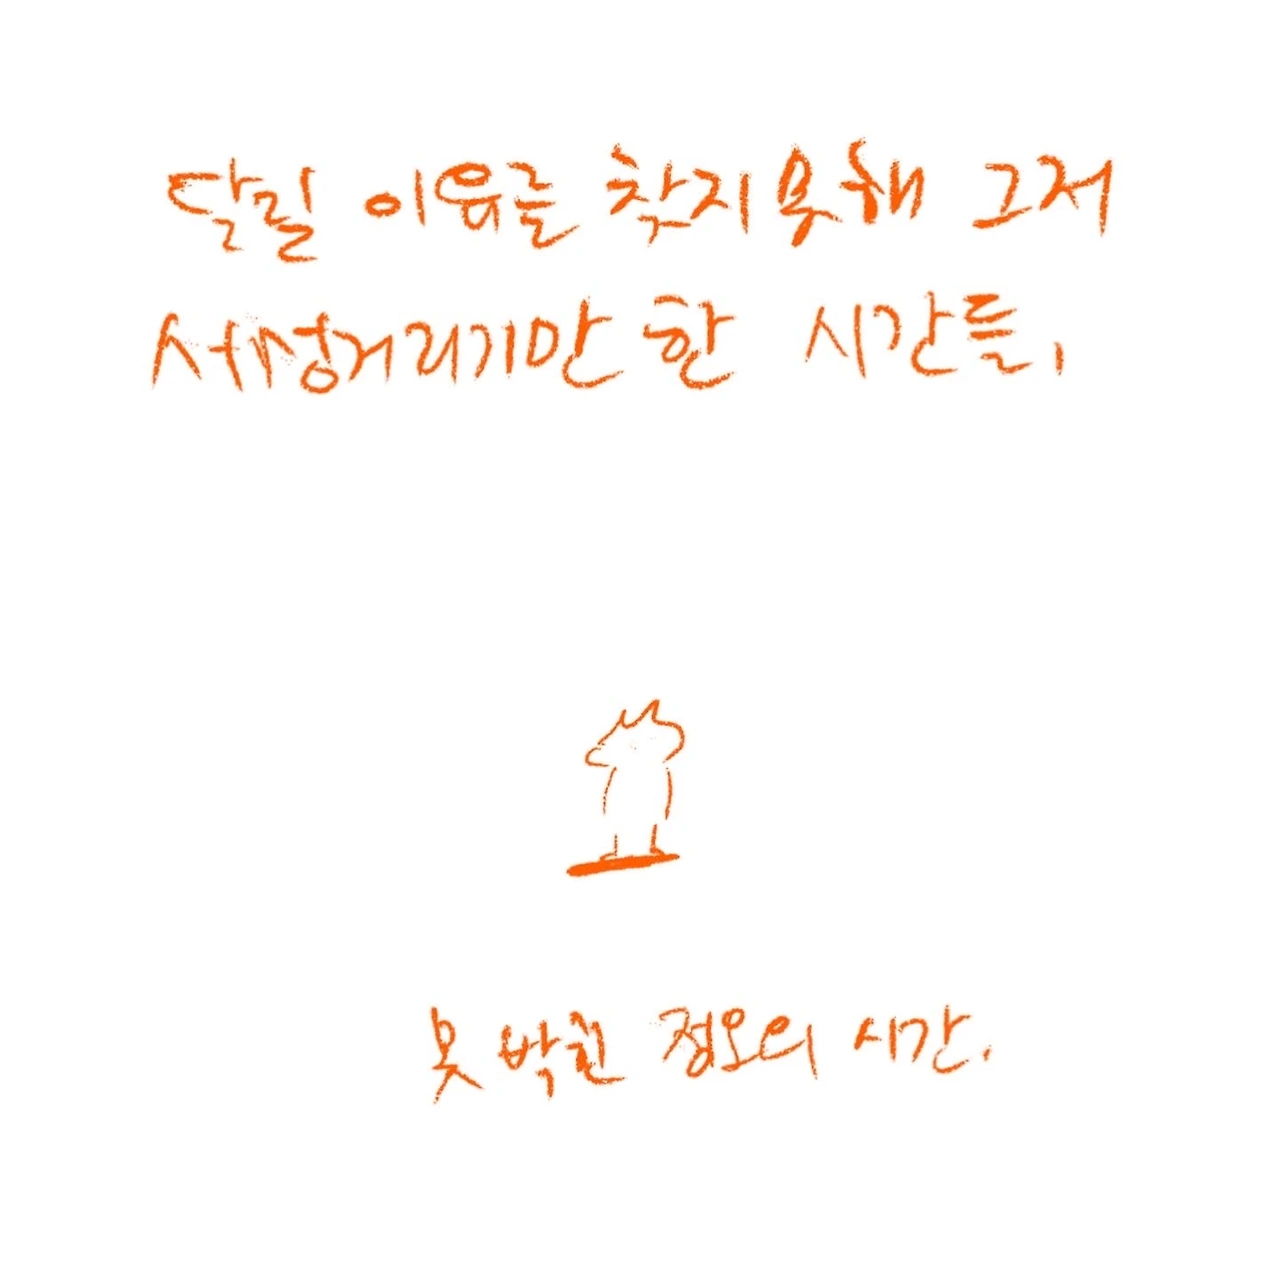 달릴 이유를 찾지 못해 그저
서성거리기만 한 시간들,
못 박힌 정오의 시간.